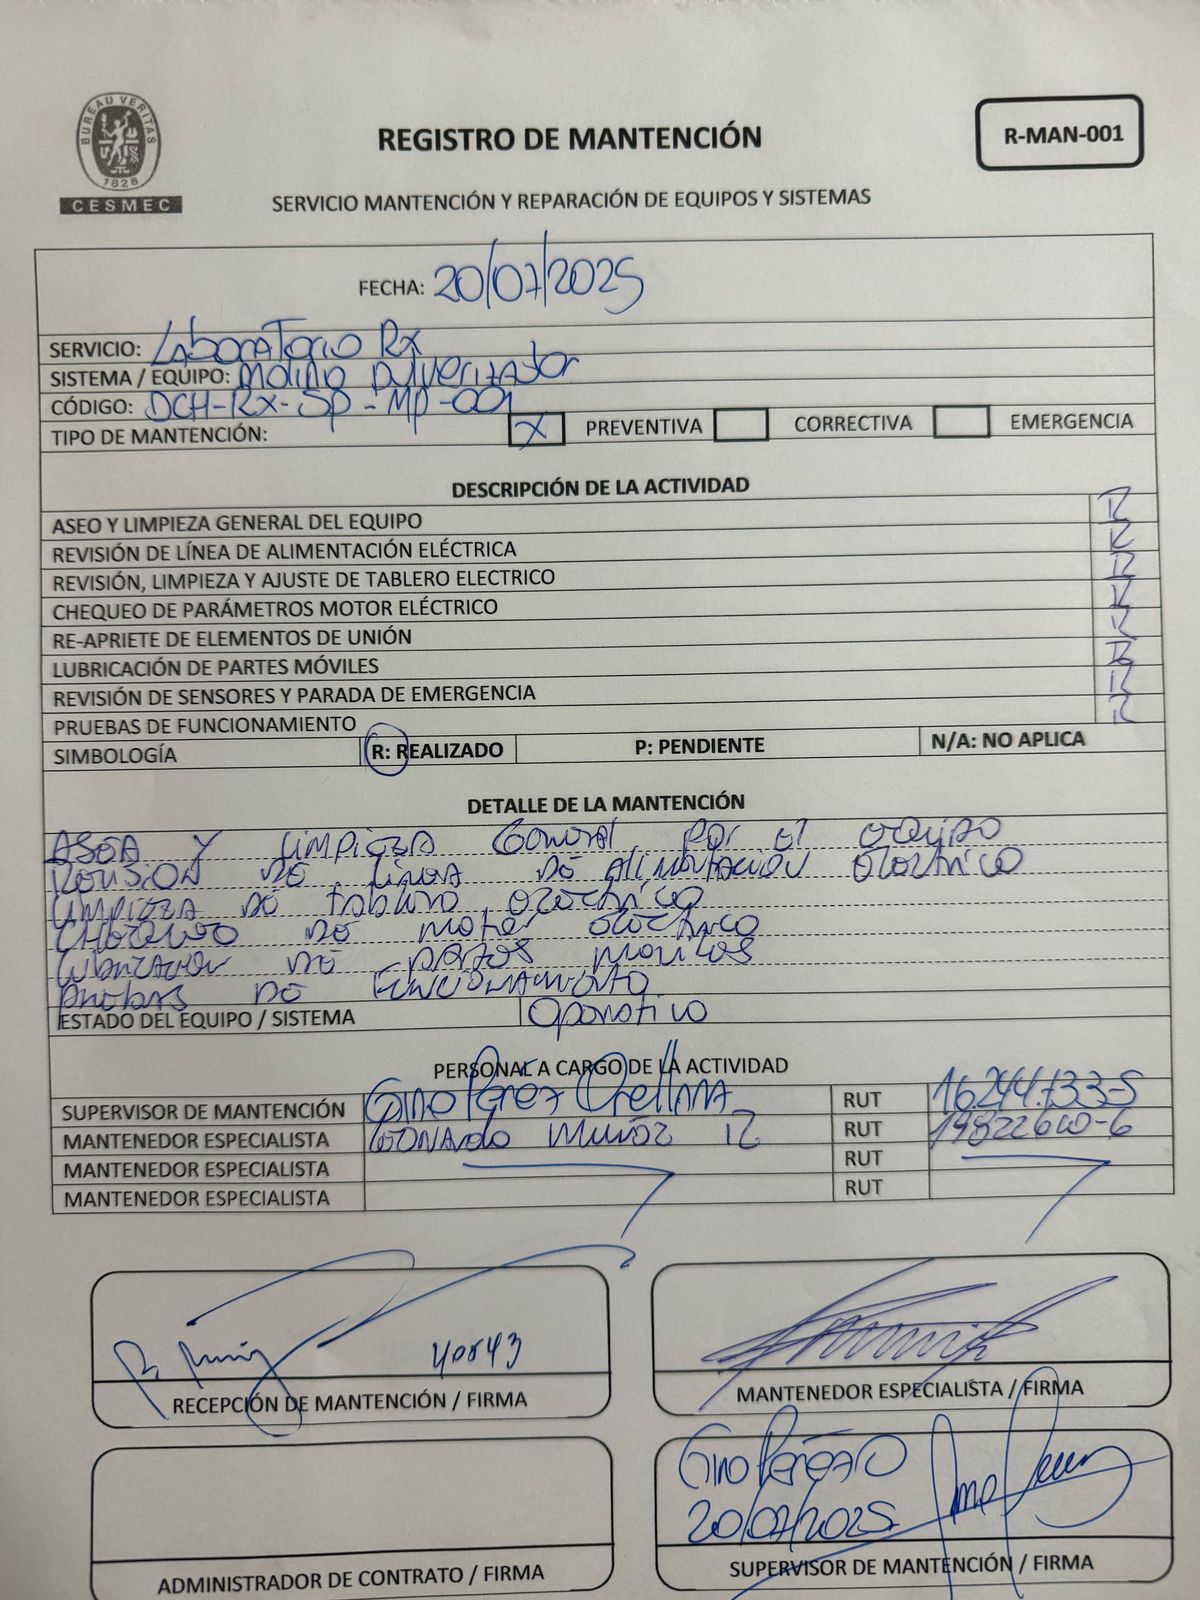 BUREAU VERITAS
1828
CESMEC
REGISTRO DE MANTENCIÓN
R-MAN-001
SERVICIO MANTENCIÓN Y REPARACIÓN DE EQUIPOS Y SISTEMAS
FECHA: 20/07/2025
SERVICIO: Laboratorio Rx
SISTEMA / EQUIPO: Molino pulverizador
CÓDIGO: DCH-RX-SP-MP-001
TIPO DE MANTENCIÓN: X PREVENTIVA CORRECTIVA EMERGENCIA
DESCRIPCIÓN DE LA ACTIVIDAD
ASEO Y LIMPIEZA GENERAL DEL EQUIPO R
REVISIÓN DE LÍNEA DE ALIMENTACIÓN ELÉCTRICA R
REVISIÓN, LIMPIEZA Y AJUSTE DE TABLERO ELECTRICO R
CHEQUEO DE PARÁMETROS MOTOR ELÉCTRICO R
RE-APRIETE DE ELEMENTOS DE UNIÓN R
LUBRICACIÓN DE PARTES MÓVILES R
REVISIÓN DE SENSORES Y PARADA DE EMERGENCIA R
PRUEBAS DE FUNCIONAMIENTO R
SIMBOLOGÍA R: REALIZADO P: PENDIENTE N/A: NO APLICA
DETALLE DE LA MANTENCIÓN
Y LIMPIEZA General por el equipo
REVISION DE linea DE Alimentación electrico
LIMPIEZA DE tablero electrico
CHEQUEO DE motor electrico
Lubricacion DE partes moviles
pruebas DE FUNCIONAMIENTO
ESTADO DEL EQUIPO / SISTEMA Operativo
PERSONAL A CARGO DE LA ACTIVIDAD
SUPERVISOR DE MANTENCIÓN Gino Perez Orellana RUT 16.244.733-5
MANTENEDOR ESPECIALISTA Leonardo Muñoz R RUT
MANTENEDOR ESPECIALISTA RUT
MANTENEDOR ESPECIALISTA RUT
40843
RECEPCIÓN DE MANTENCIÓN / FIRMA
MANTENEDOR ESPECIALISTA / FIRMA
Gino Perez O
20/07/2025
ADMINISTRADOR DE CONTRATO / FIRMA
SUPERVISOR DE MANTENCIÓN / FIRMA